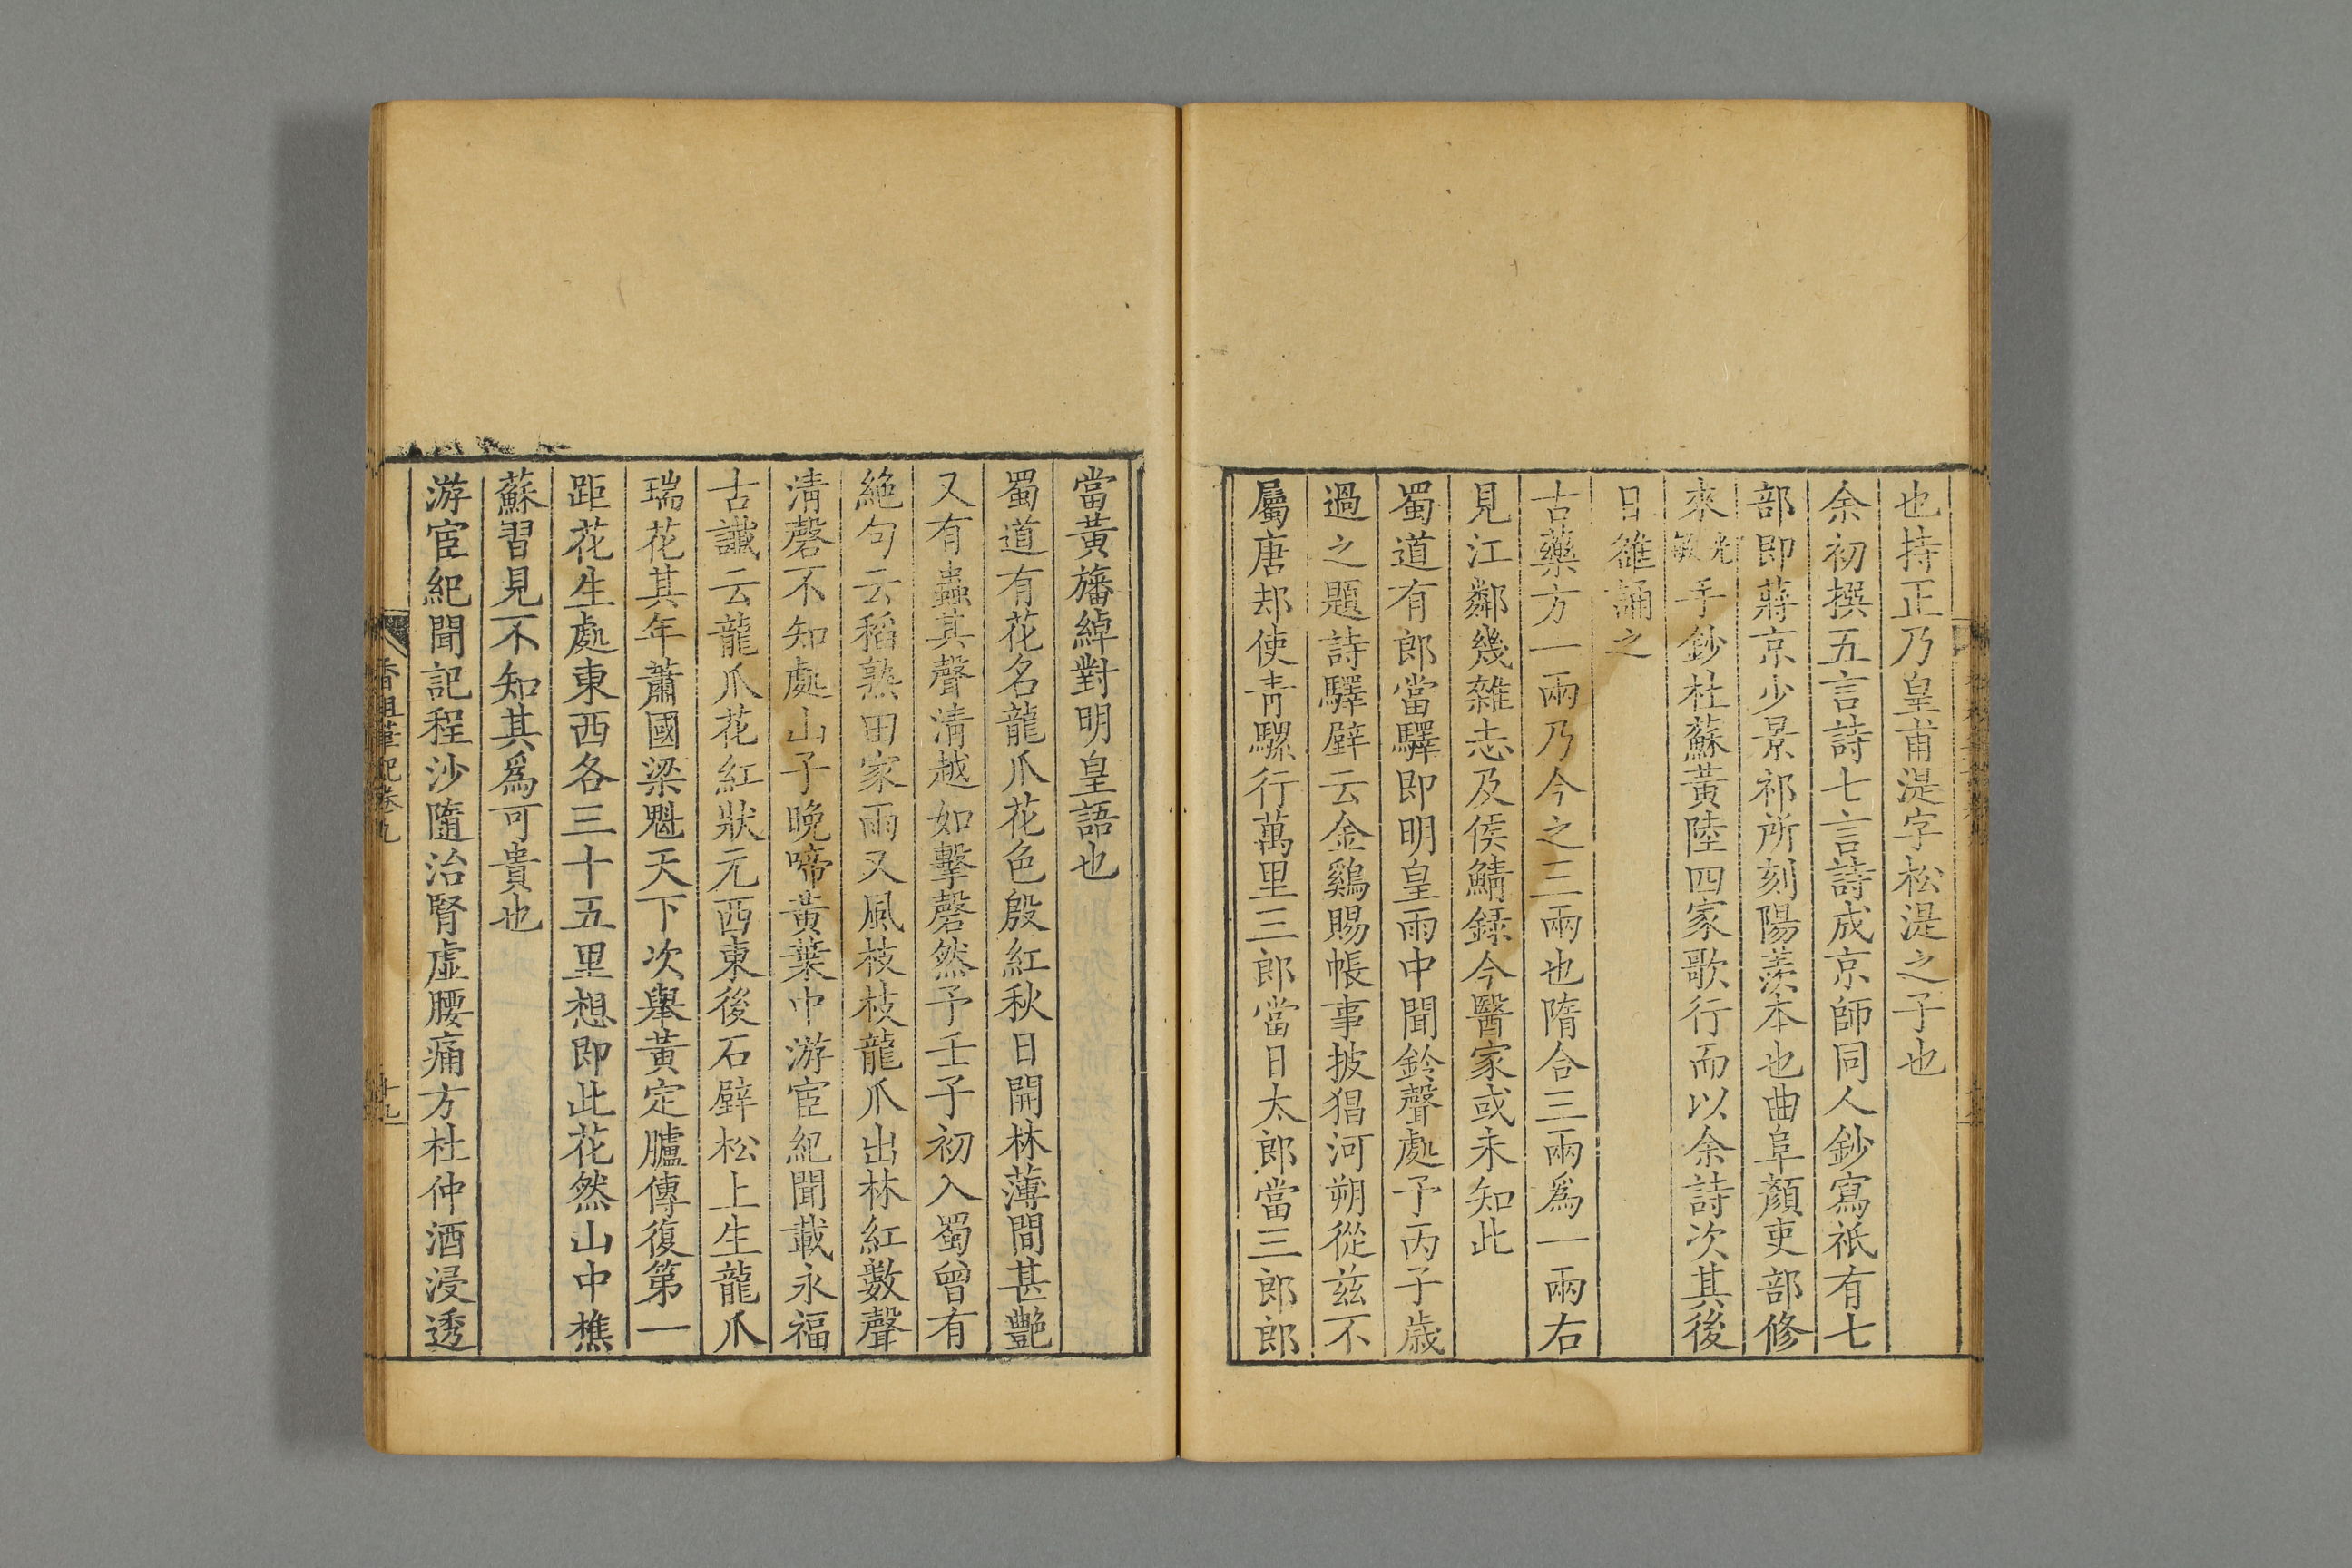 也持正乃皇甫湜字松湜之子也
余初撰五言詩七言詩成京師同人鈔寫祇有七
部即蔣京少景祁所刻陽羨本也曲阜顏吏部修
來光敏手鈔杜蘇黃陸四家歌行而以余詩次其後
日維誦之
古藥方一兩乃今之三兩也隋合三兩爲一兩右
見江鄰幾雜志及侯鯖錄今醫家或未知此
蜀道有郎當驛即明皇雨中聞鈴聲處予丙子歳
過之題詩驛壁云金鷄賜帳事披猖河朔從兹不
屬唐却使青騾行萬里三郎當日太郎當三郎郎
當黃旛綽對明皇語也
蜀道有花名龍爪花色殷紅秋日開林薄間甚艷
又有蟲其聲清越如擊磬然予壬子初入蜀曾有
絕句云稻熟田家雨又風枝枝龍爪出林紅數聲
淸磬不知處山子晚啼黃葉中游宦紀聞載永福
古讖云龍爪花紅狀元西東後石壁松上生龍爪
瑞花其年蕭國梁魁天下次舉黃定臚傳復第一
距花生處東西各三十五里想即此花然山中樵
蘇習見不知其爲可貴也
游宦紀聞記程沙隨治腎虛腰痛方杜仲酒浸透
香祖筆記卷九
十九